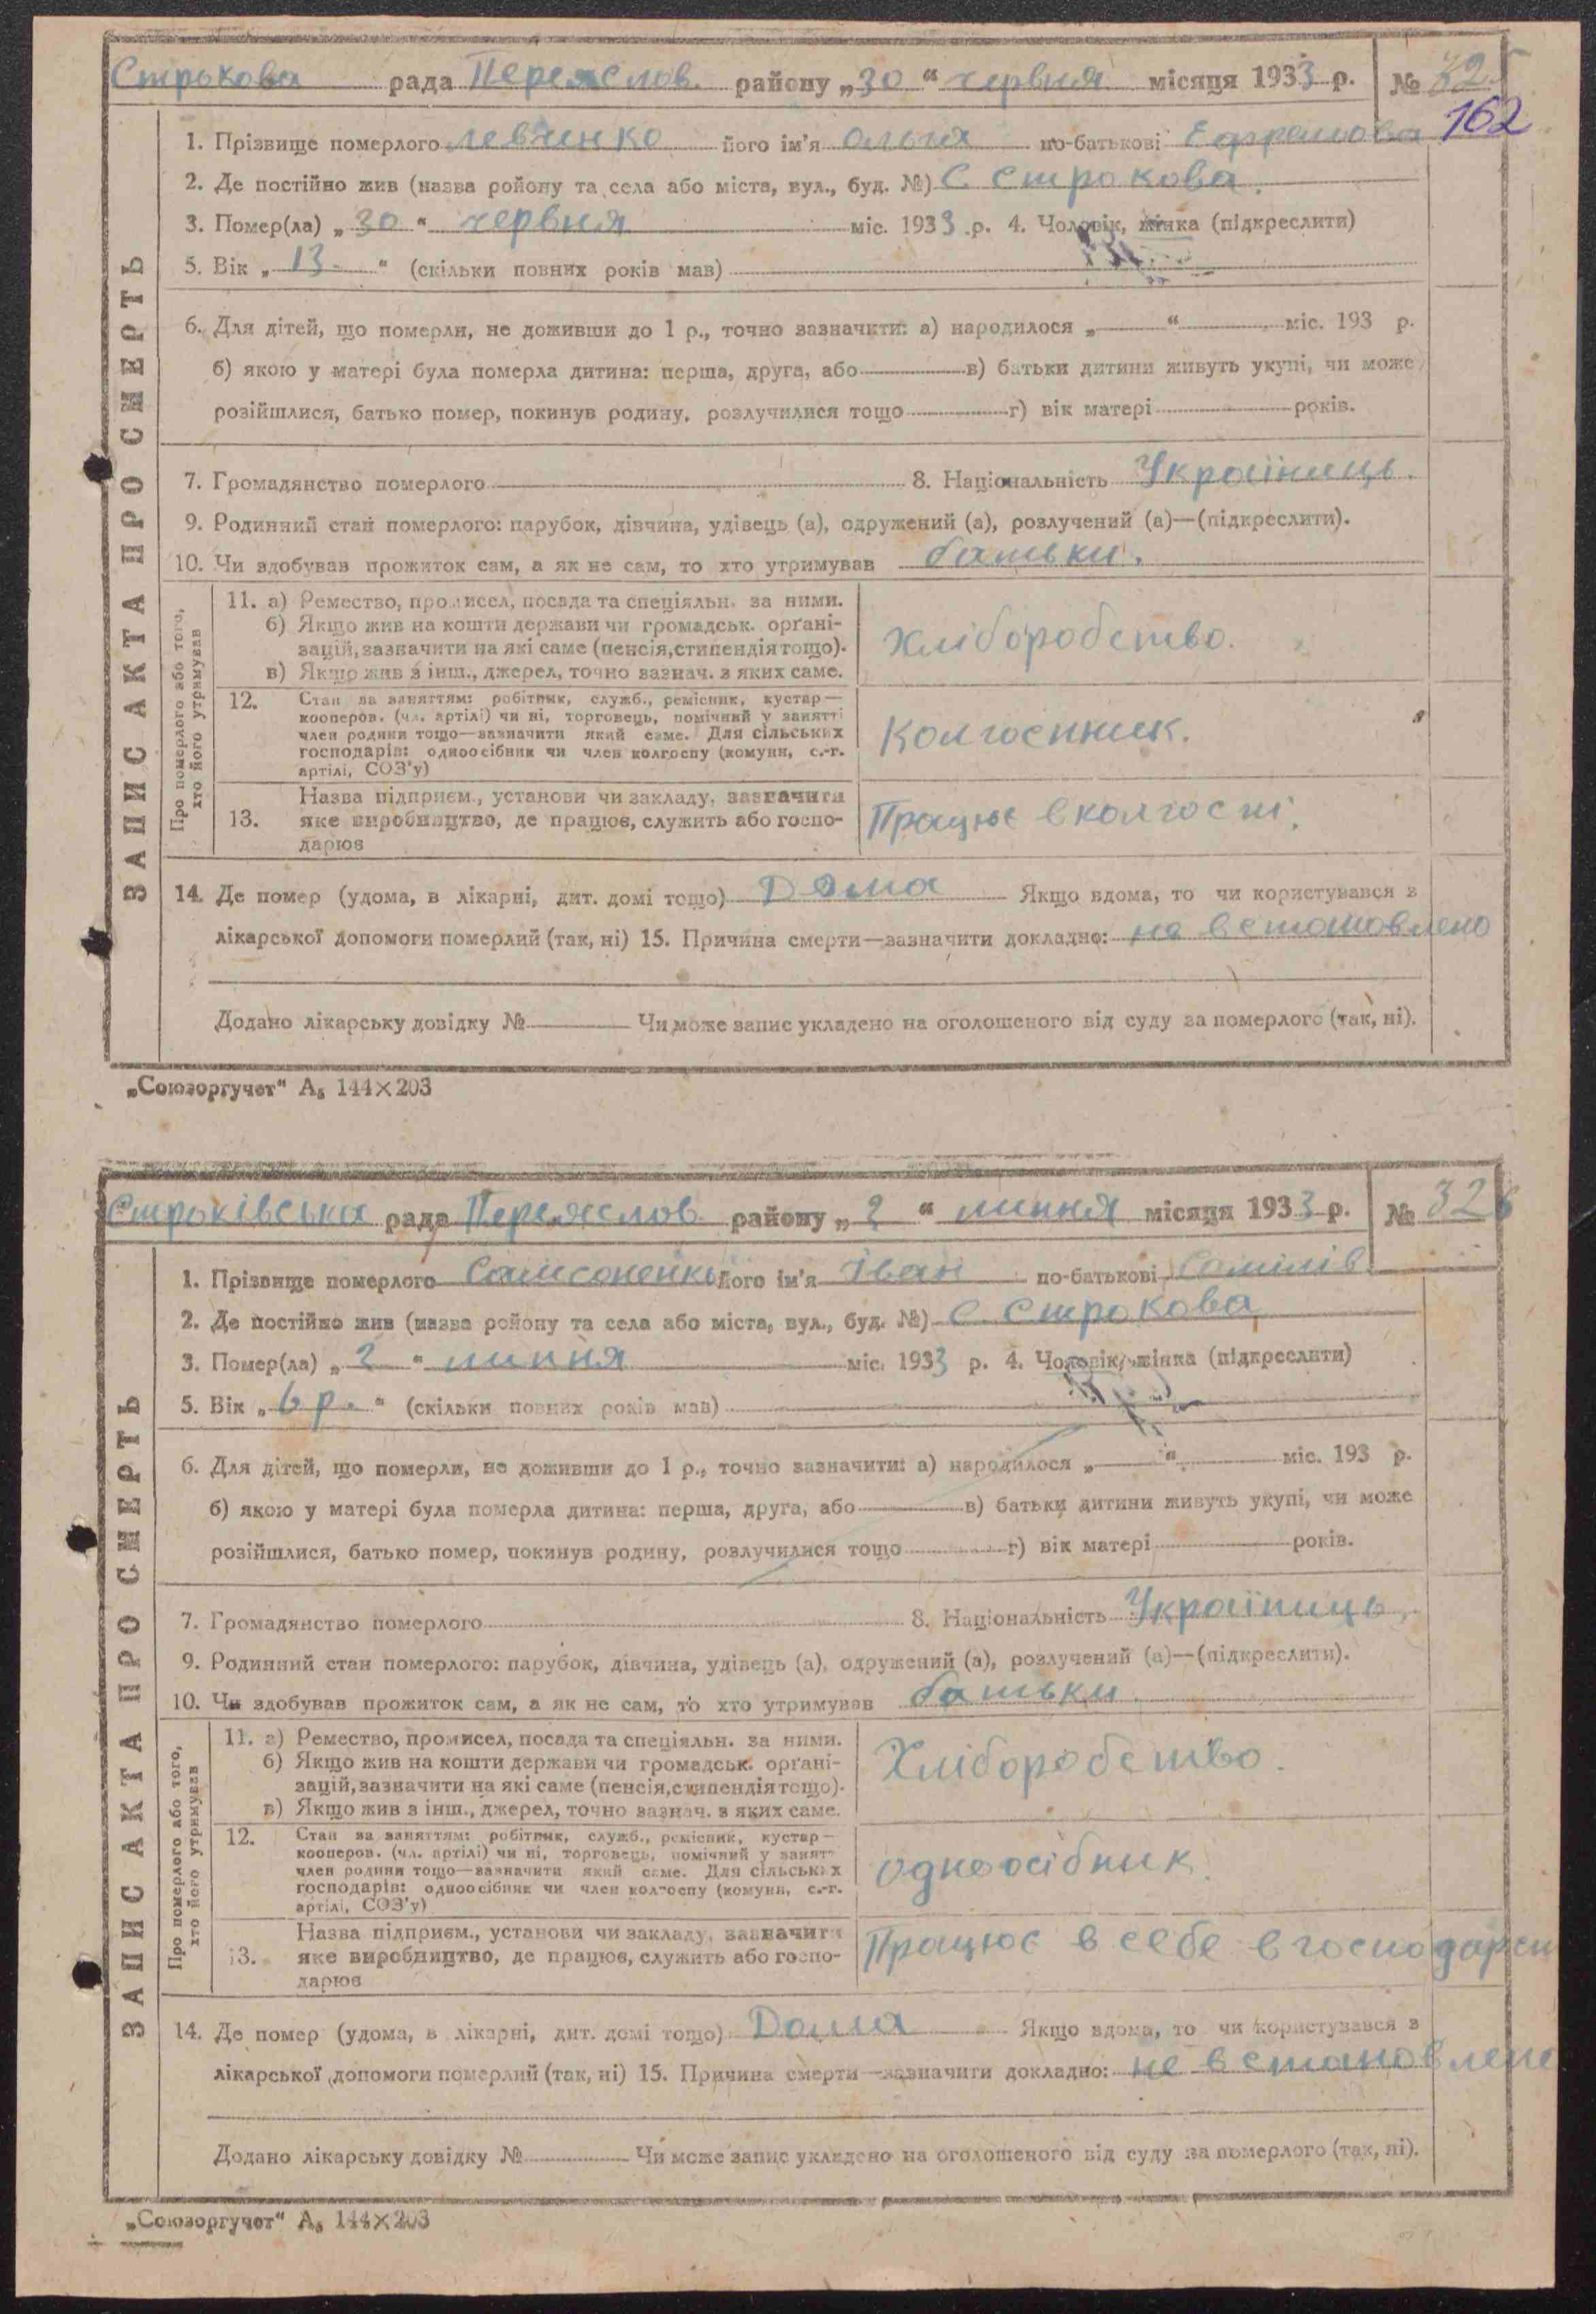 Строкова рада Переяслов. району „30“ червня місяця 1933 р. № 325
162
1. Прізвище померлого Левченко його ім'я Ольга по-батькові
2. Де постійно жив (назва ройону та села або міста, вул., буд. №) С. Строкова.
3. Помер(ла) „30“ червня міс. 1933 р. 4. Чоловік, жінка (підкреслити)
5. Вік „13“ (скільки повних років мав)
6. Для дітей, що померли, не доживши до 1 р., точно зазначити: а) народилося „ “ міс. 193 р.
б) якою у матері була померла дитина: перша, друга, або в) батьки дитини живуть укупі, чи може
розійшлися, батько помер, покинув родину, розлучилися тощо г) вік матері років.
7. Громадянство померлого 8. Національність Українець.
9. Родинний стан померлого: парубок, дівчина, удівець (а), одружений (а), розлучений (а)—(підкреслити).
10. Чи здобував прожиток сам, а як не сам, то хто утримував батьки.
ЗАПИС АКТА ПРО СМЕРТЬ
Про померлого або того,
хто його утримував
11. а) Ремество, промисел, посада та спеціяльн. за ними.
б) Якщо жив на кошти держави чи громадськ. орґані-
зацій, зазначити на які саме (пенсія, стипендія тощо).
в) Якщо жив з інш., джерел, точно зазнач. з яких саме.
Хліборобство.
12. Стан за заняттям: робітник, служб., ремісник, кустар—
кооперов. (чл. артілі) чи ні, торговець, помічний у занятті
член родини тощо—зазначити який саме. Для сільських
господарів: одноосібник чи член колгоспу (комуни, с.-г.
артілі, СОЗ'у)
Колгоспник.
13. Назва підприєм., установи чи закладу, зазначити
яке виробництво, де працює, служить або госпо-
дарює
Працює в колгоспі.
14. Де помер (удома, в лікарні, дит. домі тощо) Дома Якщо вдома, то чи користувався з
лікарської допомоги померлий (так, ні) 15. Причина смерти—зазначити докладно: не встановлено
Додано лікарську довідку № Чи може запис укладено на оголошеного від суду за померлого (так, ні).
„Союзоргучет“ А₅ 144×203
Строківська рада Переяслов. району „2“ липня місяця 1933 р. № 326
1. Прізвище померлого Самсоненко його ім'я Іван по-батькові
2. Де постійно жив (назва ройону та села або міста, вул., буд. №) С. Строкова
3. Помер(ла) „2“ липня міс. 1933 р. 4. Чоловік, жінка (підкреслити)
5. Вік „6 р.“ (скільки повних років мав)
6. Для дітей, що померли, не доживши до 1 р., точно зазначити: а) народилося „ “ міс. 193 р.
б) якою у матері була померла дитина: перша, друга, або в) батьки дитини живуть укупі, чи може
розійшлися, батько помер, покинув родину, розлучилися тощо г) вік матері років.
7. Громадянство померлого 8. Національність Україниць.
9. Родинний стан померлого: парубок, дівчина, удівець (а), одружений (а), розлучений (а)—(підкреслити).
10. Чи здобував прожиток сам, а як не сам, то хто утримував батьки.
ЗАПИС АКТА ПРО СМЕРТЬ
Про померлого або того,
хто його утримував
11. а) Ремество, промисел, посада та спеціяльн. за ними.
б) Якщо жив на кошти держави чи громадськ. орґані-
зацій, зазначити на які саме (пенсія, стипендія тощо).
в) Якщо жив з інш., джерел, точно зазнач. з яких саме.
Хліборобство.
12. Стан за заняттям: робітник, служб., ремісник, кустар—
кооперов. (чл. артілі) чи ні, торговець, помічний у занятт
член родини тощо—зазначити який саме. Для сільських
господарів: одноосібник чи член колгоспу (комуни, с.-г.
артілі, СОЗ'у)
одноосібник.
13. Назва підприєм., установи чи закладу, зазначити
яке виробництво, де працює, служить або госпо-
дарює
Працює в себе в господарси
14. Де помер (удома, в лікарні, дит. домі тощо) Дома Якщо вдома, то чи користувався з
лікарської допомоги померлий (так, ні) 15. Причина смерти—зазначити докладно: не встановлене
Додано лікарську довідку № Чи може запис укладено на оголошеного від суду за померлого (так, ні).
„Союзоргучет“ А₅ 144×203